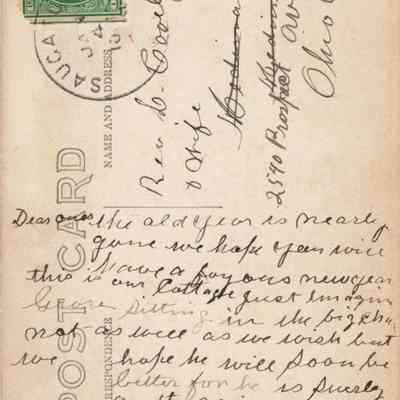 SAUGA
JA
4
POST CARD
NAME AND ADDRESS
CORRESPONDENCE
Rev L.
& Wife
2540 Prospect Av
Ohio
Dear ones the old year is nearly
gone we hope you will
Have a joyous new year
this is our Cottage Just
sitting in the big
not as well as we wish but
we hope he will soon be
better for he is surely